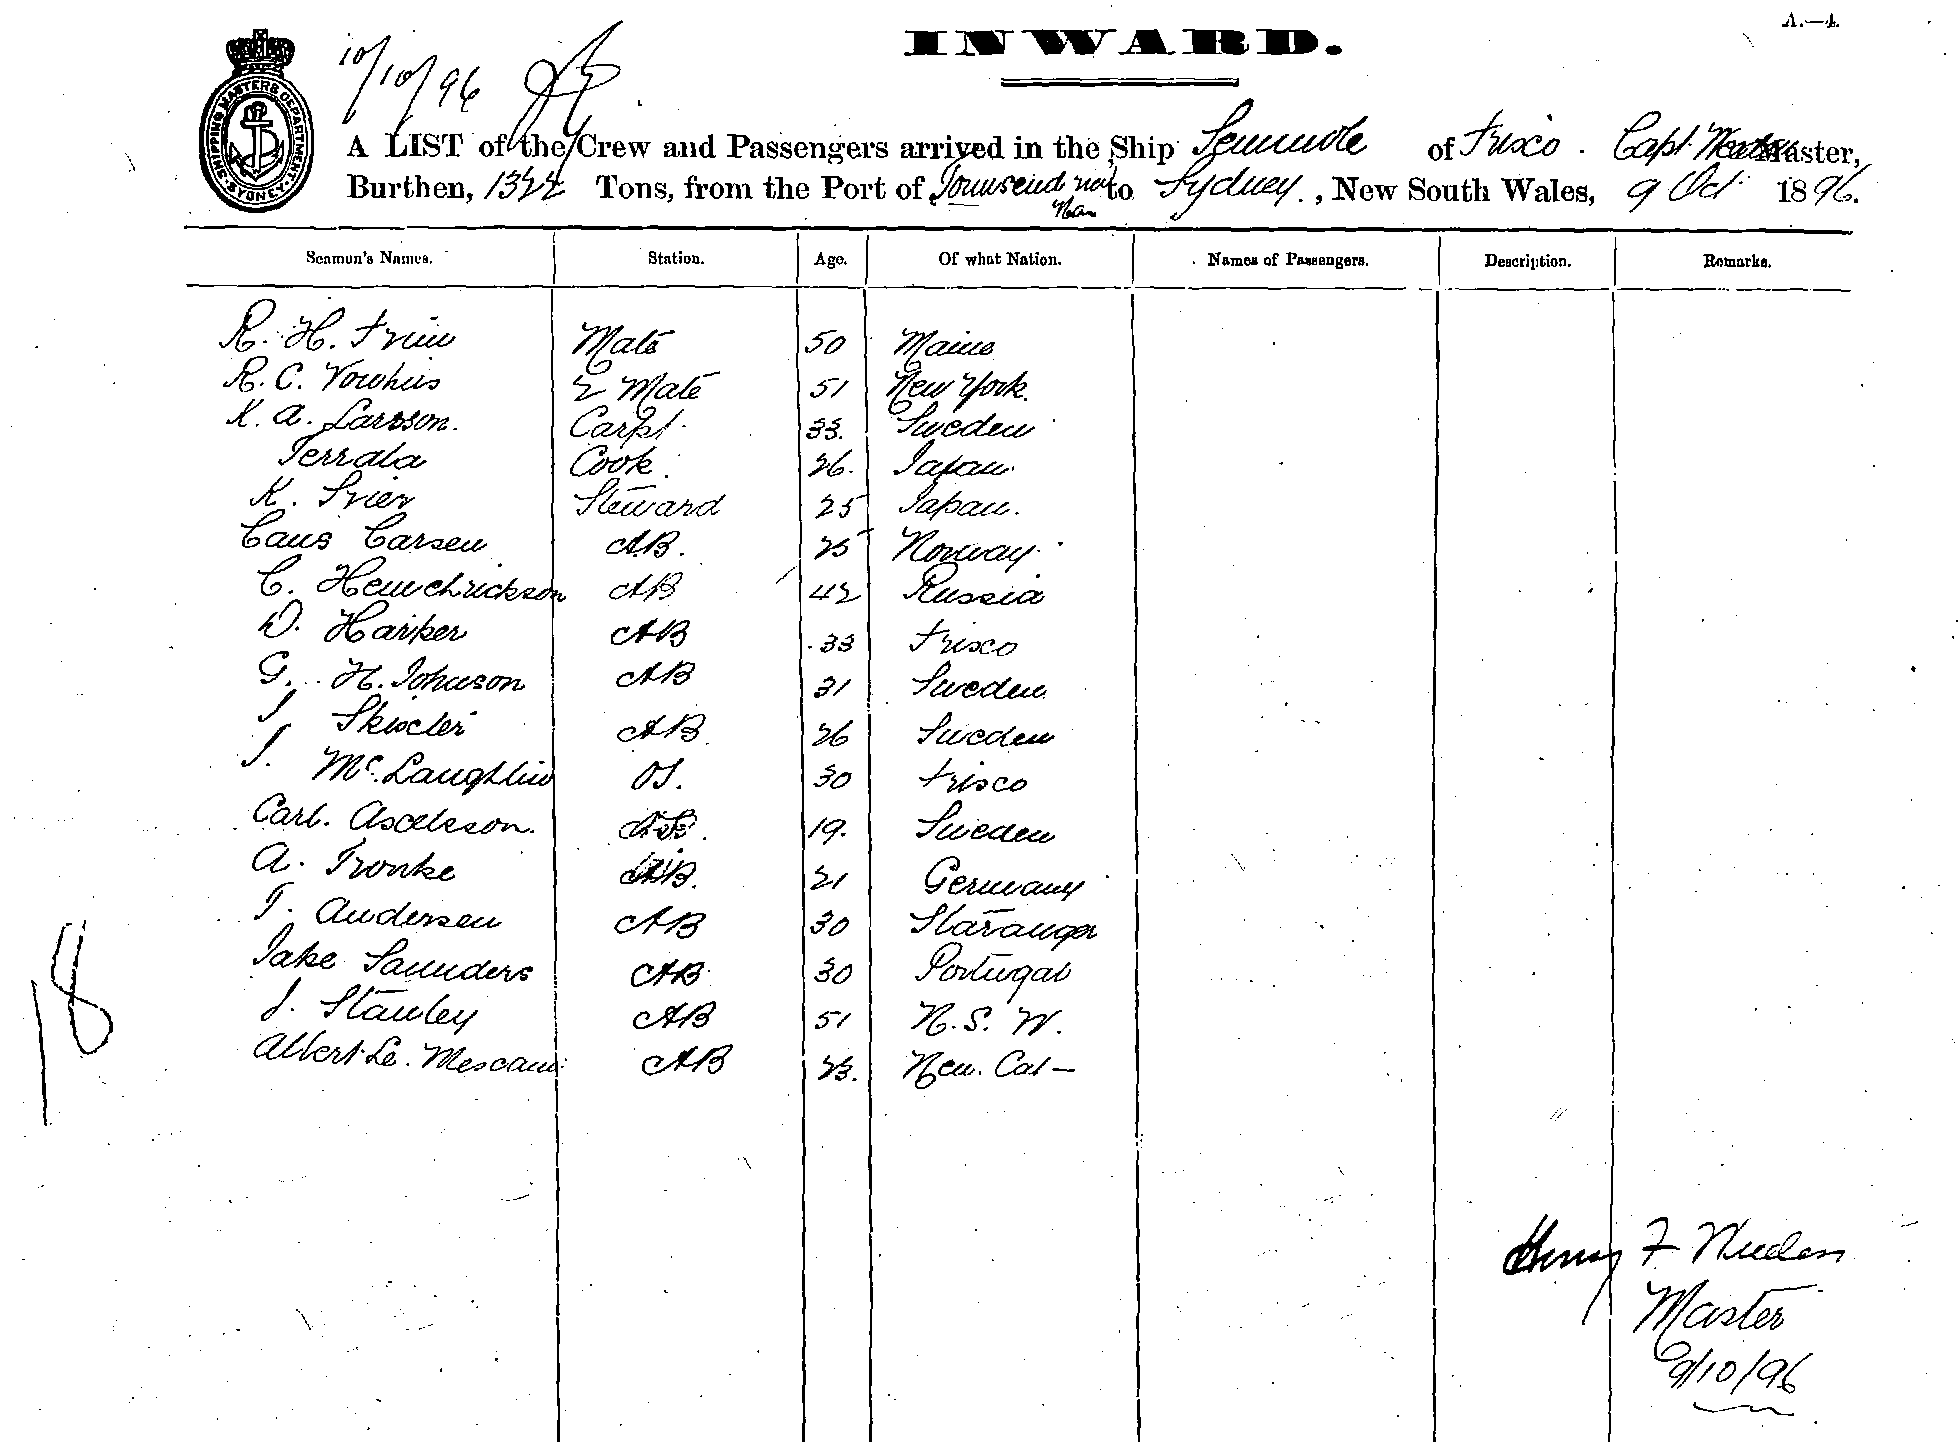 A.—4.
INWARD.
10/10/96
SHIPPING MASTERS DEPARTMENT SYDNEY
A LIST of the Crew and Passengers arrived in the Ship Seminole of Frisco. Capt Master,
Burthen, 1322 Tons, from the Port of Townsend to Sydney., New South Wales, 9 Oct 1896.
Seamen's Names. Station. Age. Of what Nation. Names of Passengers. Description. Remarks.
R. H. Mate 50 Maine
R. C. 2 Mate 51 New York.
K. A. Larsson. Carpt. 33. Sweden
Terrada Cook. 26. Japan.
K. Steward 25 Japan.
Carsen AB. 25 Norway.
C. AB 42 Russia
D. Harker AB 33 Frisco
G. H. Johnson AB 31 Sweden
AB 26 Sweden
J. McLaughlin OS. 30 Frisco
Carl. 19. Sweden
A. Tronke AB. 21 Germany
T. Andersen AB 30 Stavanger
Jake Saunders AB 30 Portugal
J. Stanley AB 51 N. S. W.
Albert Le. AB 23. New. Cal—
18
Henry F
Master
9/10/96